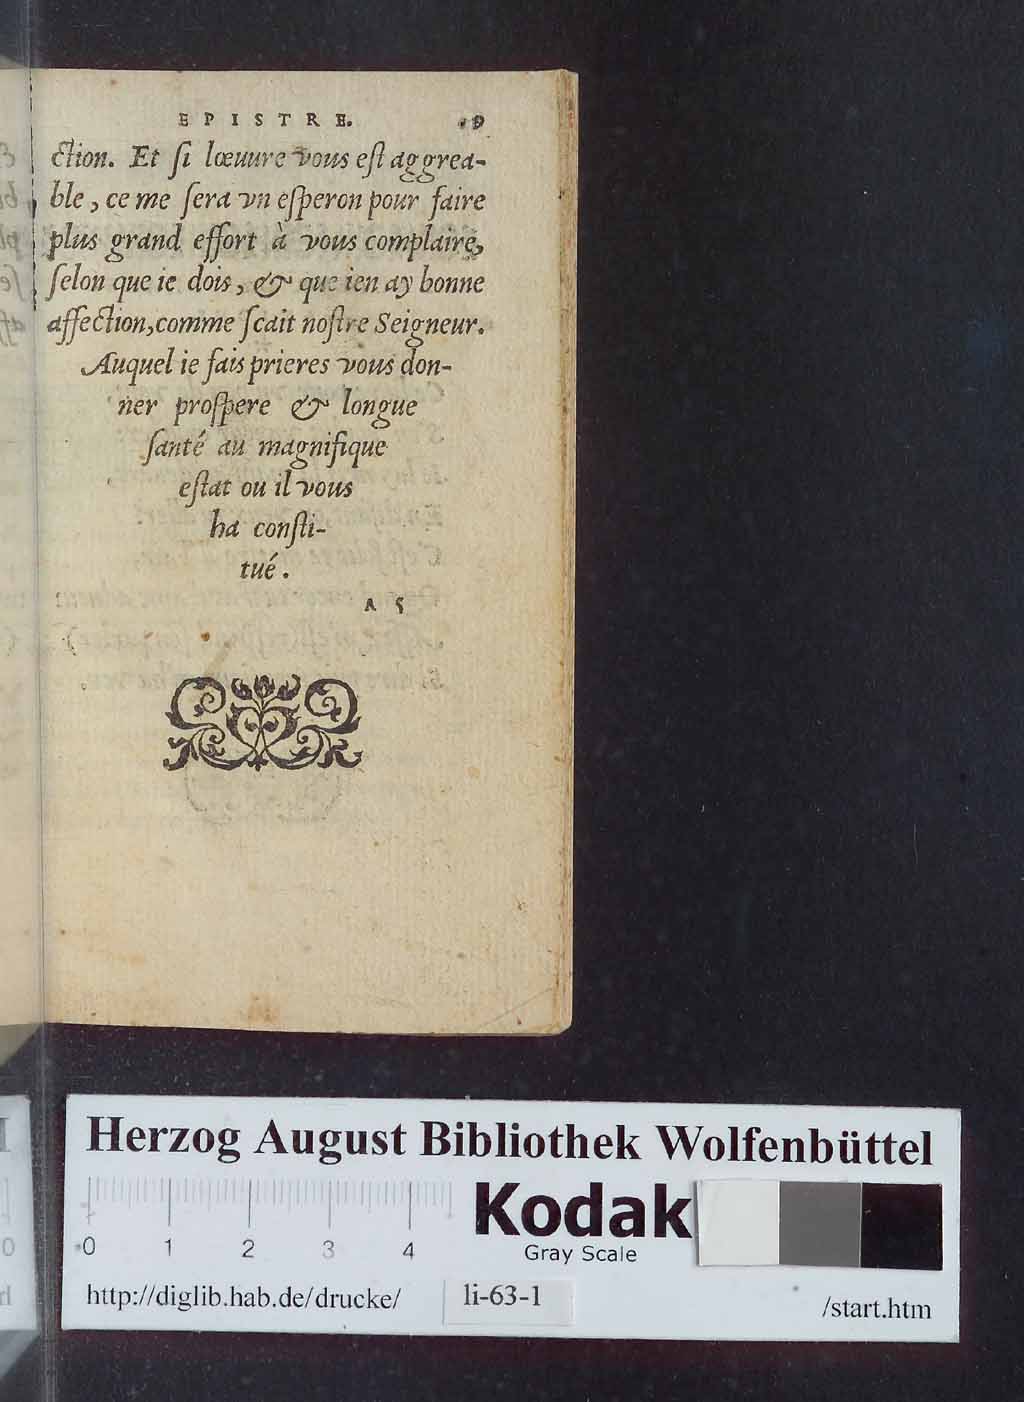 EPISTRE. 9
ction. Et ſi lœuure vous eſt aggrea-
ble, ce me ſera vn eſperon pour faire
plus grand effort à vous complaire,
ſelon que ie dois, & que ien ay bonne
affection, comme ſcait noſtre Seigneur.
Auquel ie fais prieres vous don-
ner proſpere & longue
ſanté au magnifique
eſtat ou il vous
ha conſti-
tué.
A 5
Herzog August Bibliothek Wolfenbüttel
0 1 2 3 4
Kodak
Gray Scale
http://diglib.hab.de/drucke/ li-63-1 /start.htm